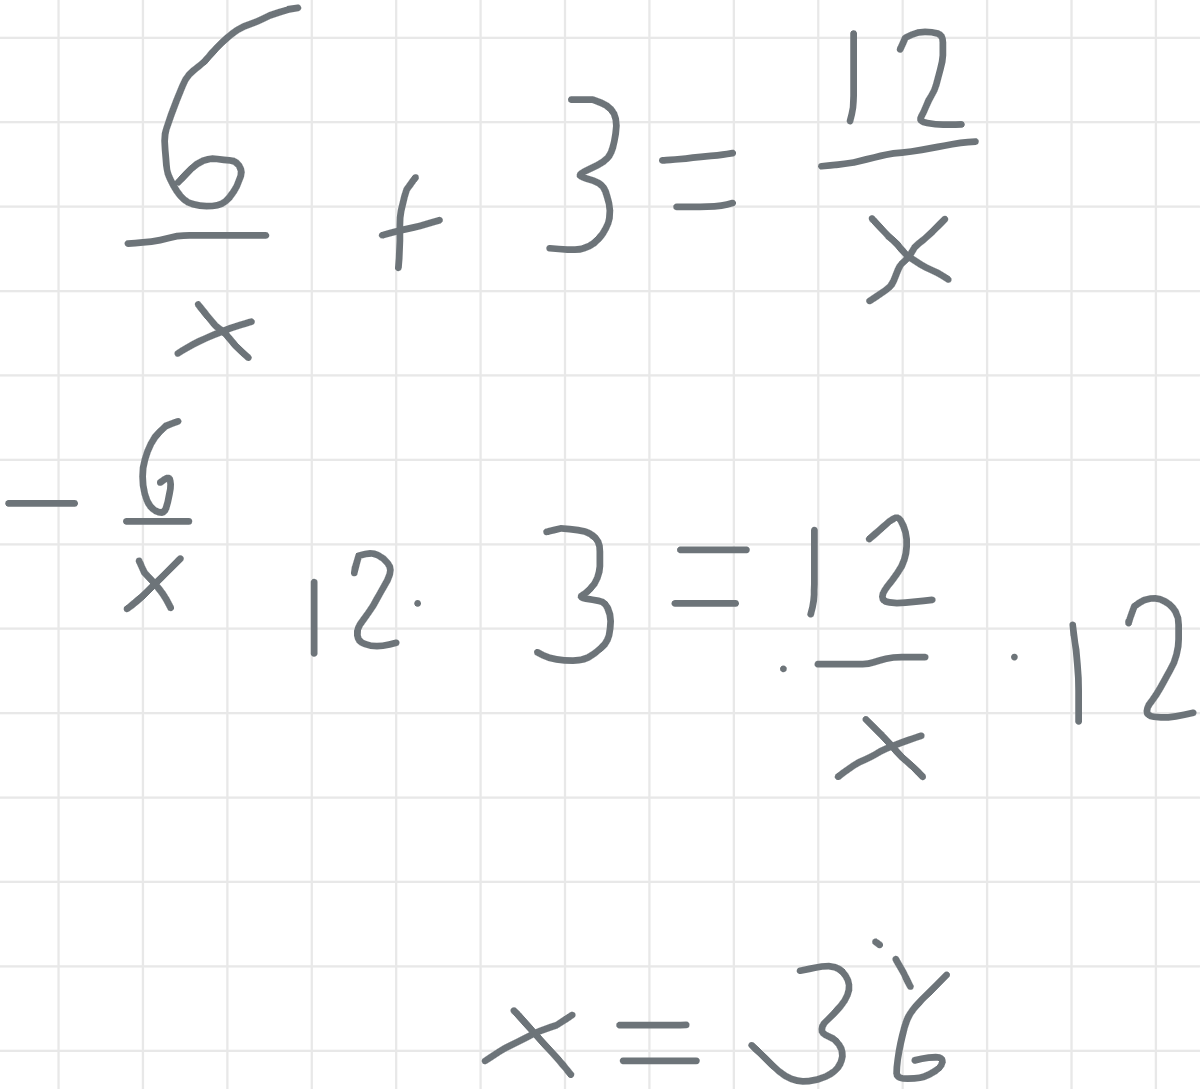 6/x + 3 = 12/x
- 6/x 12 · 3 = · 12/x · 12
x = 36